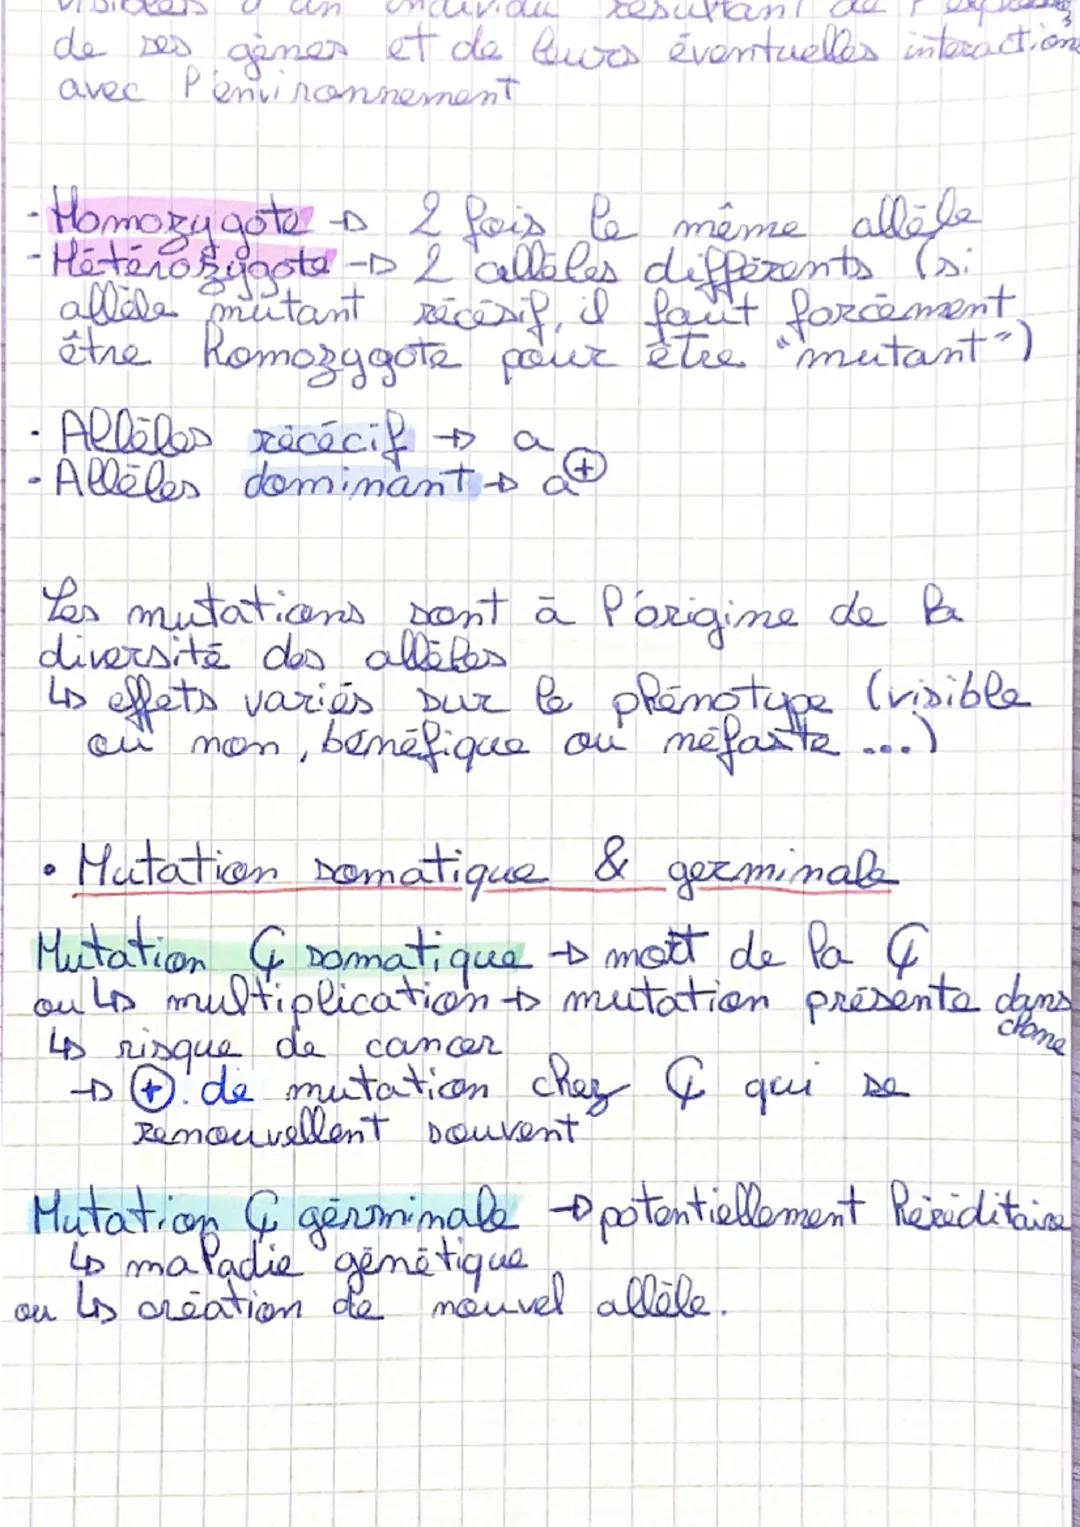 visibles d'un individu résultant de l'
de ses gènes et de leurs éventuelles interactions
avec l'environnement
- Homozygote → 2 fois le même allèle
- Hétérozygote → 2 allèles différents (si
allèle mutant récésif, il faut forcément
être homozygote pour être "mutant")
· Allèles récécif → a
- Allèles dominant → a⊕
Les mutations sont à l'origine de la
diversité des allèles
↳ effets variés sur le phénotype (visible
ou non, bénéfique ou méfaste ...)
• Mutation somatique & germinale
Mutation ₵ somatique → mort de la ₵
ou ↳ multiplication → mutation présente dans
clone
↳ risque de cancer
→ ⊕ de mutation chez ₵ qui se
renouvellent souvent
Mutation ₵ gérminale → potentiellement héréditaire
↳ maladie génétique
ou ↳ création de nouvel allèle.